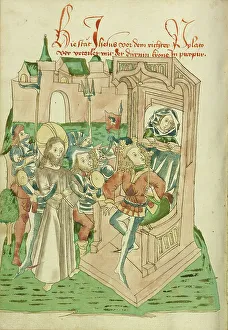 Hie stat Jhesus vor dem richter Pylato
vor verailet mit der durnin krone in purpur